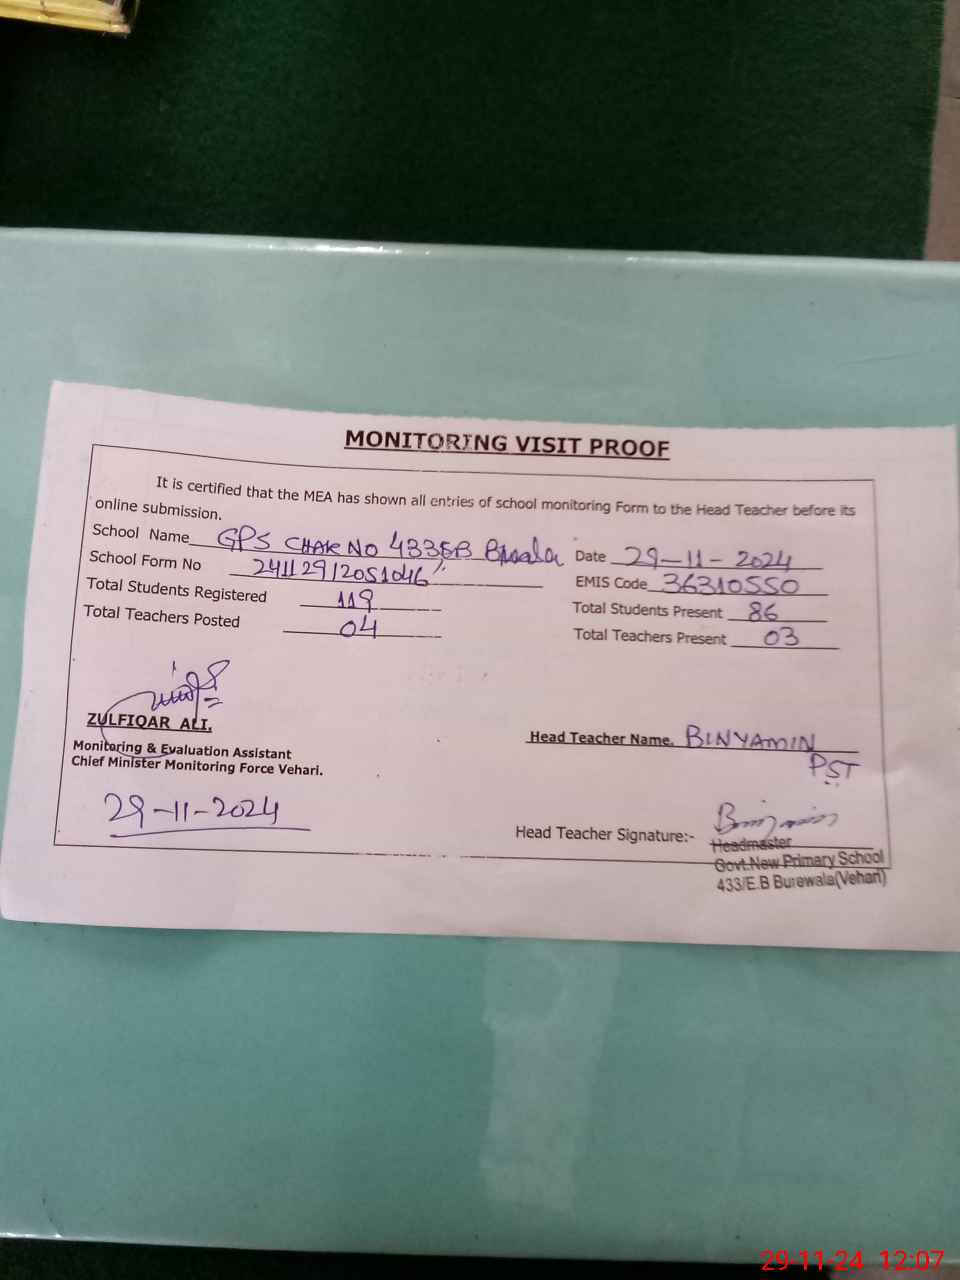 MONITORING VISIT PROOF
It is certified that the MEA has shown all entries of school monitoring Form to the Head Teacher before its
online submission.
School Name GPS CHAK NO 433EB Date 29-11-2024
School Form No 24112912051046 EMIS Code 36310550
Total Students Registered 119 Total Students Present 86
Total Teachers Posted 04 Total Teachers Present 03
ZULFIQAR ALI.
Monitoring & Evaluation Assistant
Chief Minister Monitoring Force Vehari.
29-11-2024
Head Teacher Name. BINYAMIN
PST
Head Teacher Signature:-
Headmaster
Govt.New Primary School
433/E.B Burewala(Vehari)
29-11-24 12:07